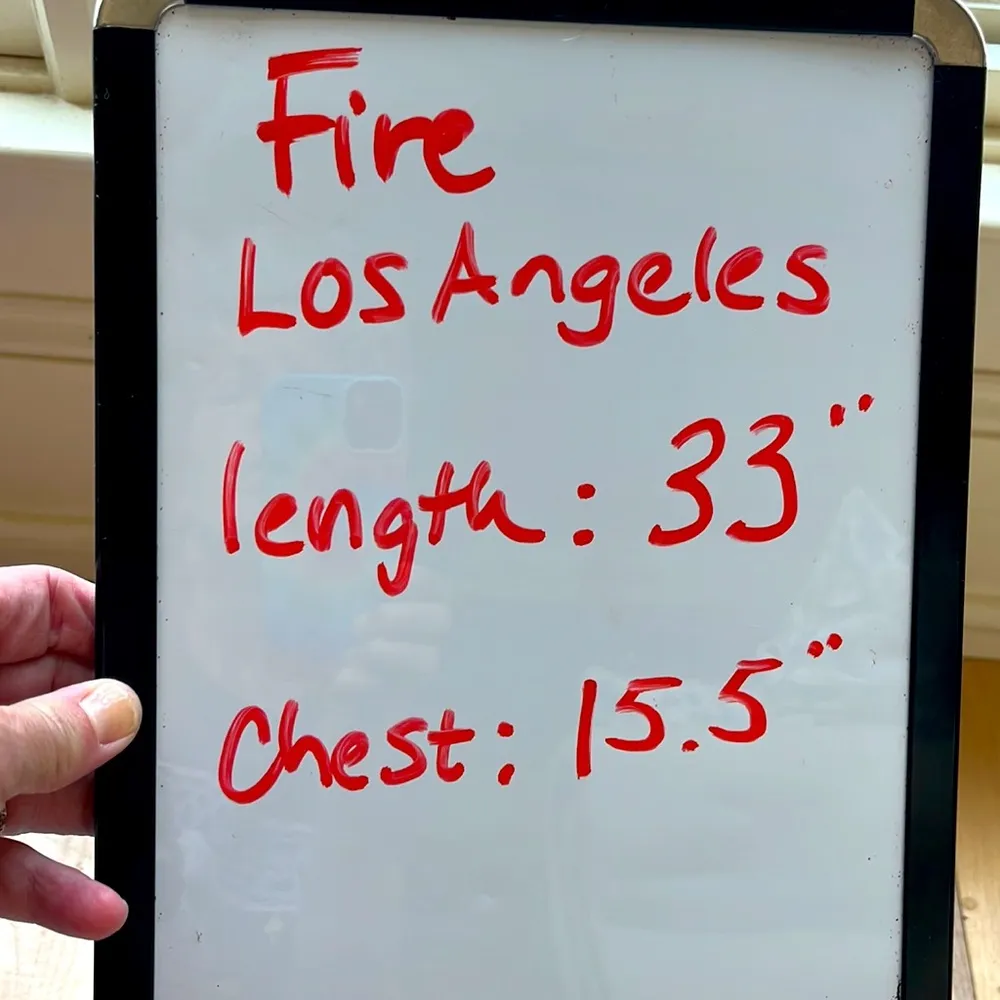 Fire
Los Angeles
length: 33"
Chest: 15.5"